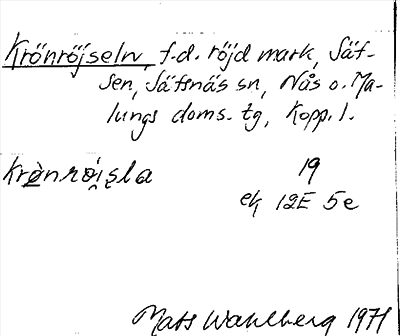 Krönröjseln, f.d. röjd mark, Säf-
sen, Säfsnäs sn, Nås o. Ma-
lungs doms. tg, Kopp. l.
krø̀nrọ́i̯sla 19
ek 12E 5e
Mats Wahlberg 1971